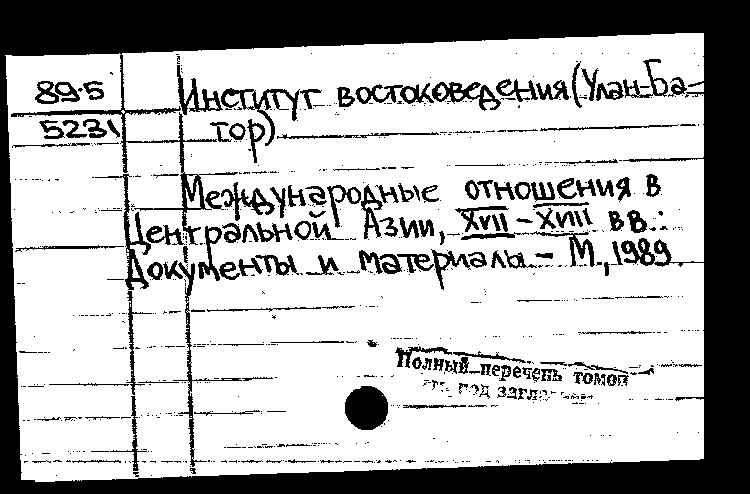 89.5
5231
Институт востоковедения (Улан-Ба-
тор)
Международные отношения в
Центральной Азии, XVII – XVIII вв.:
Документы и материалы. – М., 1989.
Полный перечень томов
под